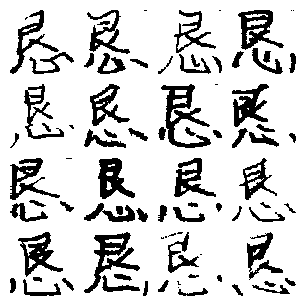 恳恳恳恳
恳恳恳恳
恳恳恳恳
恳恳恳恳